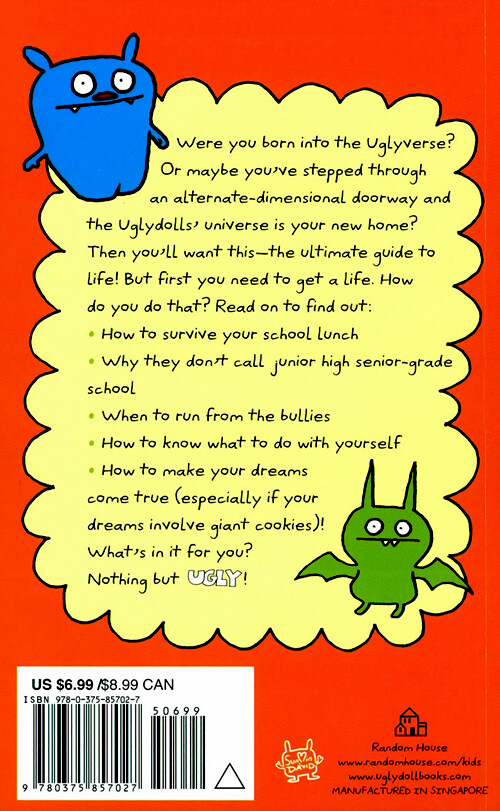 Were you born into the Uglyverse?
Or maybe you've stepped through
an alternate-dimensional doorway and
the Uglydolls' universe is your new home?
Then you'll want this—the ultimate guide to
life! But first you need to get a life. How
do you do that? Read on to find out:
• How to survive your school lunch
• Why they don't call junior high senior-grade
school
• When to run from the bullies
• How to know what to do with yourself
• How to make your dreams
come true (especially if your
dreams involve giant cookies)!
What's in it for you?
Nothing but UGLY!
US $6.99 /$8.99 CAN
ISBN 978-0-375-85702-7
50699
9 780375 857027
Sun Min
DAVID
Random House
www.randomhouse.com/kids
www.uglydollbooks.com
MANUFACTURED IN SINGAPORE